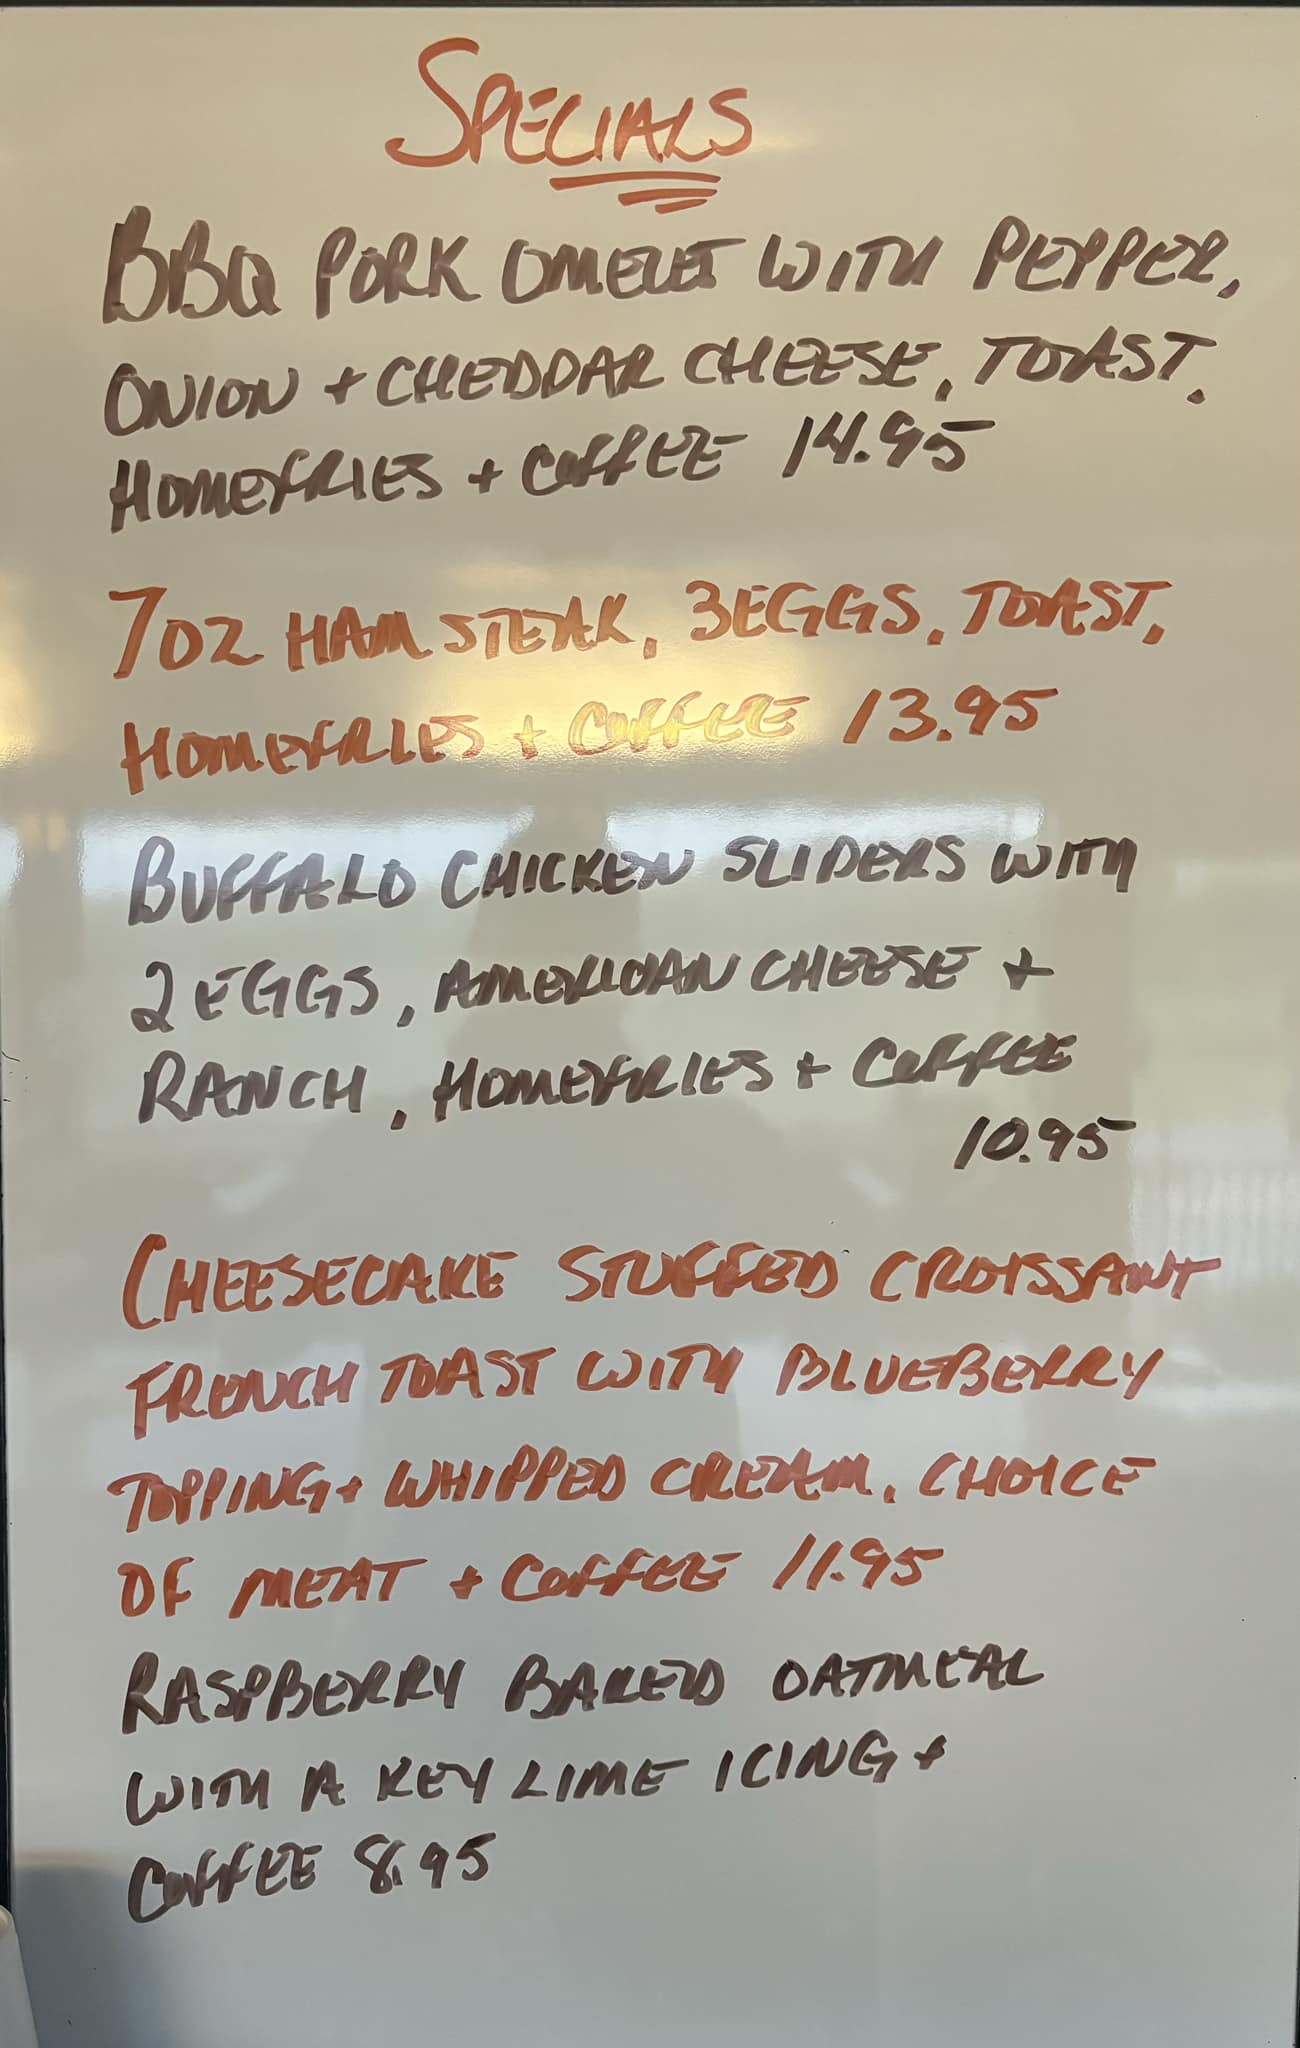 SPECIALS
BBQ PORK OMELET WITH PEPPER,
ONION + CHEDDAR CHEESE, TOAST,
HOMEFRIES + COFFEE 14.95
7OZ HAM STEAK, 3 EGGS, TOAST,
HOMEFRIES + COFFEE 13.95
BUFFALO CHICKEN SLIDERS WITH
2 EGGS, AMERICAN CHEESE +
RANCH, HOMEFRIES + COFFEE
10.95
CHEESECAKE STUFFED CROISSANT
FRENCH TOAST WITH BLUEBERRY
TOPPING + WHIPPED CREAM, CHOICE
OF MEAT + COFFEE 11.95
RASPBERRY BAKED OATMEAL
WITH A KEY LIME ICING +
COFFEE 8.95